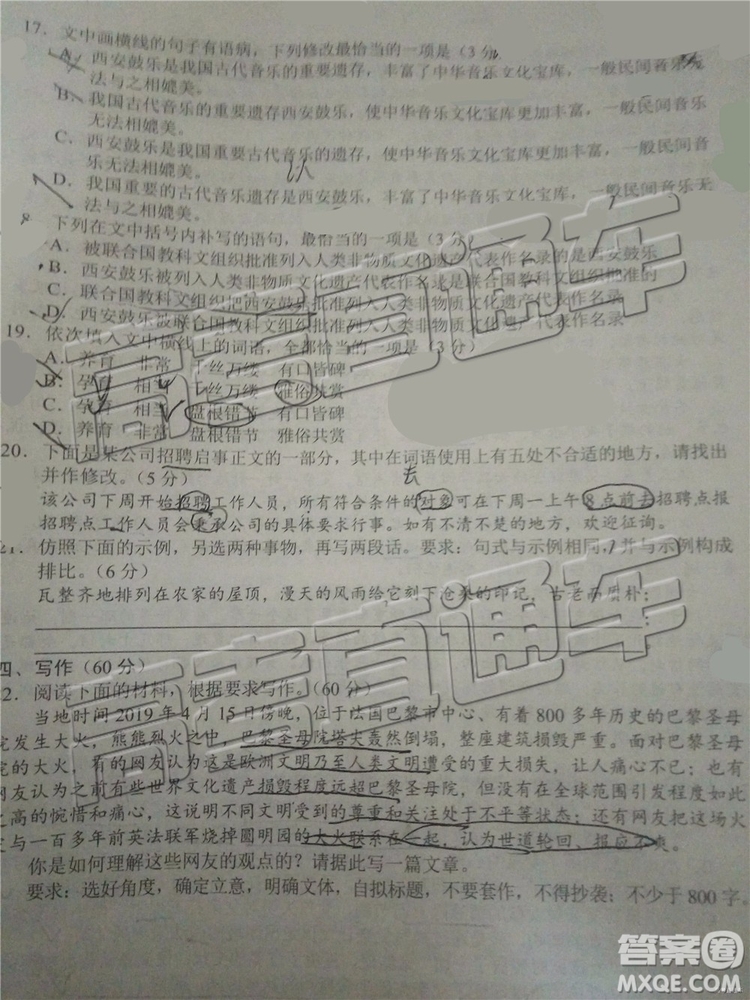 17. 文中画横线的句子有语病，下列修改最恰当的一项是（3分
A. 西安鼓乐是我国古代音乐的重要遗存，丰富了中华音乐文化宝库，一般民间音乐无
法与之相媲美。
B. 我国古代音乐的重要遗存西安鼓乐，使中华音乐文化宝库更加丰富，一般民间音乐
无法相媲美。
C. 西安鼓乐是我国重要古代音乐的遗存，使中华音乐文化宝库更加丰富，一般民间音
乐无法相媲美。
D. 我国重要的古代音乐遗存是西安鼓乐，丰富了中华音乐文化宝库，一般民间音乐无
法与之相媲美。
下列在文中括号内补写的语句，最恰当的一项是（3分）
A. 被联合国教科文组织批准列入人类非物质文化遗产代表作名录的是西安鼓乐
B. 西安鼓乐被列入人类非物质文化遗产代表作名录是联合国教科文组织批准的
C. 联合国教科文组织把西安鼓乐批准列入人类非物质文化遗产代表作名录
D. 西安鼓乐被联合国教科文组织批准列入人类非物质文化遗产代表作名录
19. 依次填入文中横线上的词语，全都恰当的一项是（3分）
A. 养育 非常 千丝万缕 有口皆碑
B. 孕育 相当 千丝万缕 雅俗共赏
C. 孕育 相当 盘根错节 有口皆碑
D. 养育 非常 盘根错节 雅俗共赏
20. 下面是某公司招聘启事正文的一部分，其中在词语使用上有五处不合适的地方，请找出
并作修改。（5分）
该公司下周开始招聘工作人员，所有符合条件的对象可在下周一上午8点前去招聘点报
招聘点工作人员会秉承公司的具体要求行事。如有不清不楚的地方，欢迎征询。
仿照下面的示例，另选两种事物，再写两段话。要求：句式与示例相同，并与示例构成
排比。（6分）
瓦整齐地排列在农家的屋顶，漫天的风雨给它刻下沧桑的印记，古老而质朴；
四、写作（60分）
2. 阅读下面的材料，根据要求写作。（60分）
当地时间2019年4月15日傍晚，位于法国巴黎市中心、有着800多年历史的巴黎圣母
院发生大火，熊熊烈火之中，巴黎圣母院塔夫轰然倒塌，整座建筑损毁严重。面对巴黎圣母
的大火，有的网友认为这是欧洲文明乃至人类文明遭受的重大损失，让人痛心不已；也有
网友认为之前有些世界文化遗产损毁程度远超巴黎圣母院，但没有在全球范围引发程度如此
之高的惋惜和痛心，这说明不同文明受到的尊重和关注处于不平等状态；还有网友把这场火
与一百多年前英法联军烧掉圆明园的大火联系在一起，认为世道轮回、报应不爽。
你是如何理解这些网友的观点的？请据此写一篇文章。
要求：选好角度，确定立意，明确文体，自拟标题，不要套作，不得抄袭；不少于800字。
高考直通车
高考直通车
答案圈
MXQE.COM